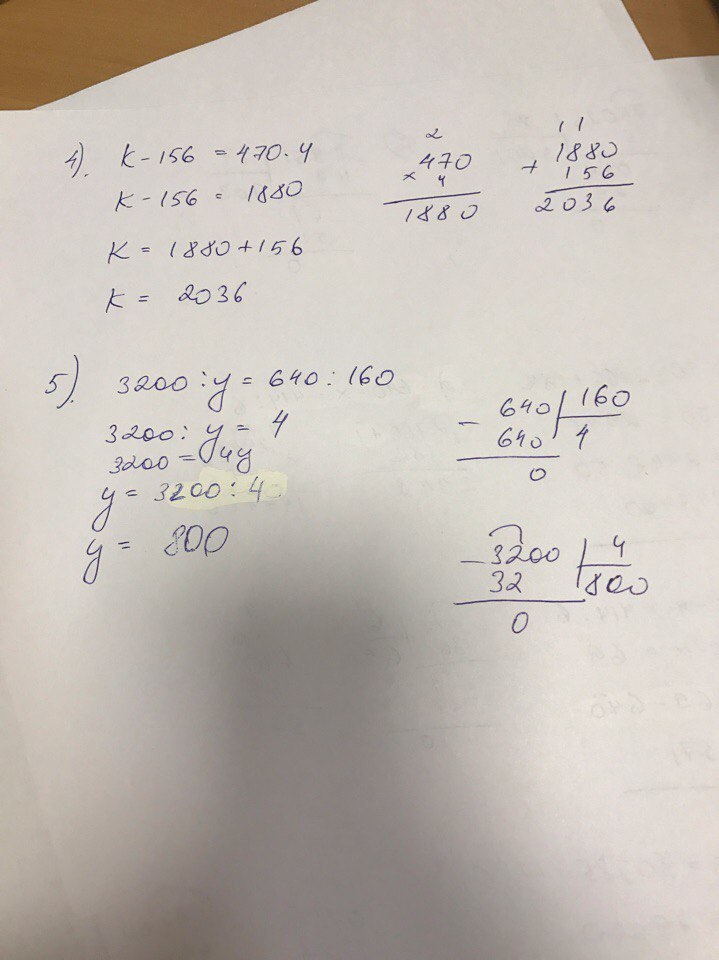 4). K - 156 = 470 · 4
K - 156 = 1880
K = 1880 + 156
K = 2036
2
× 470
4
1880
1 1
+ 1880
156
2036
5). 3200 : y = 640 : 160
3200 : y = 4
3200 = 4y
y = 3200 : 4
y = 800
- 640 | 160
640 | 4
0
- 3200 | 4
32 | 800
0